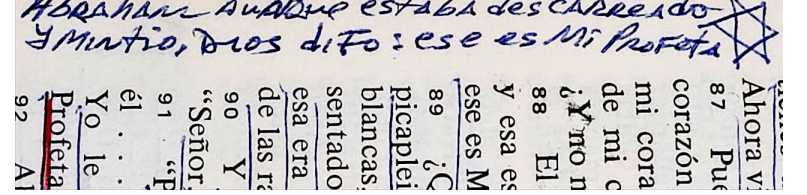 ABRAHAM AUNQUE estaba descarreado
Y Mintio, Dios diFo: ese es Mi Profeta
Ahora vi
87 Pue
corazón
mi cora
de mi c
¿Y no n
88 El
y esa es
ese es M
89 ¿Q
picaplei
blancas,
sentado
esa era
de las ra
90 Y
“Señor,
91 “P
él . . .
Yo le
Profeta
92 Al